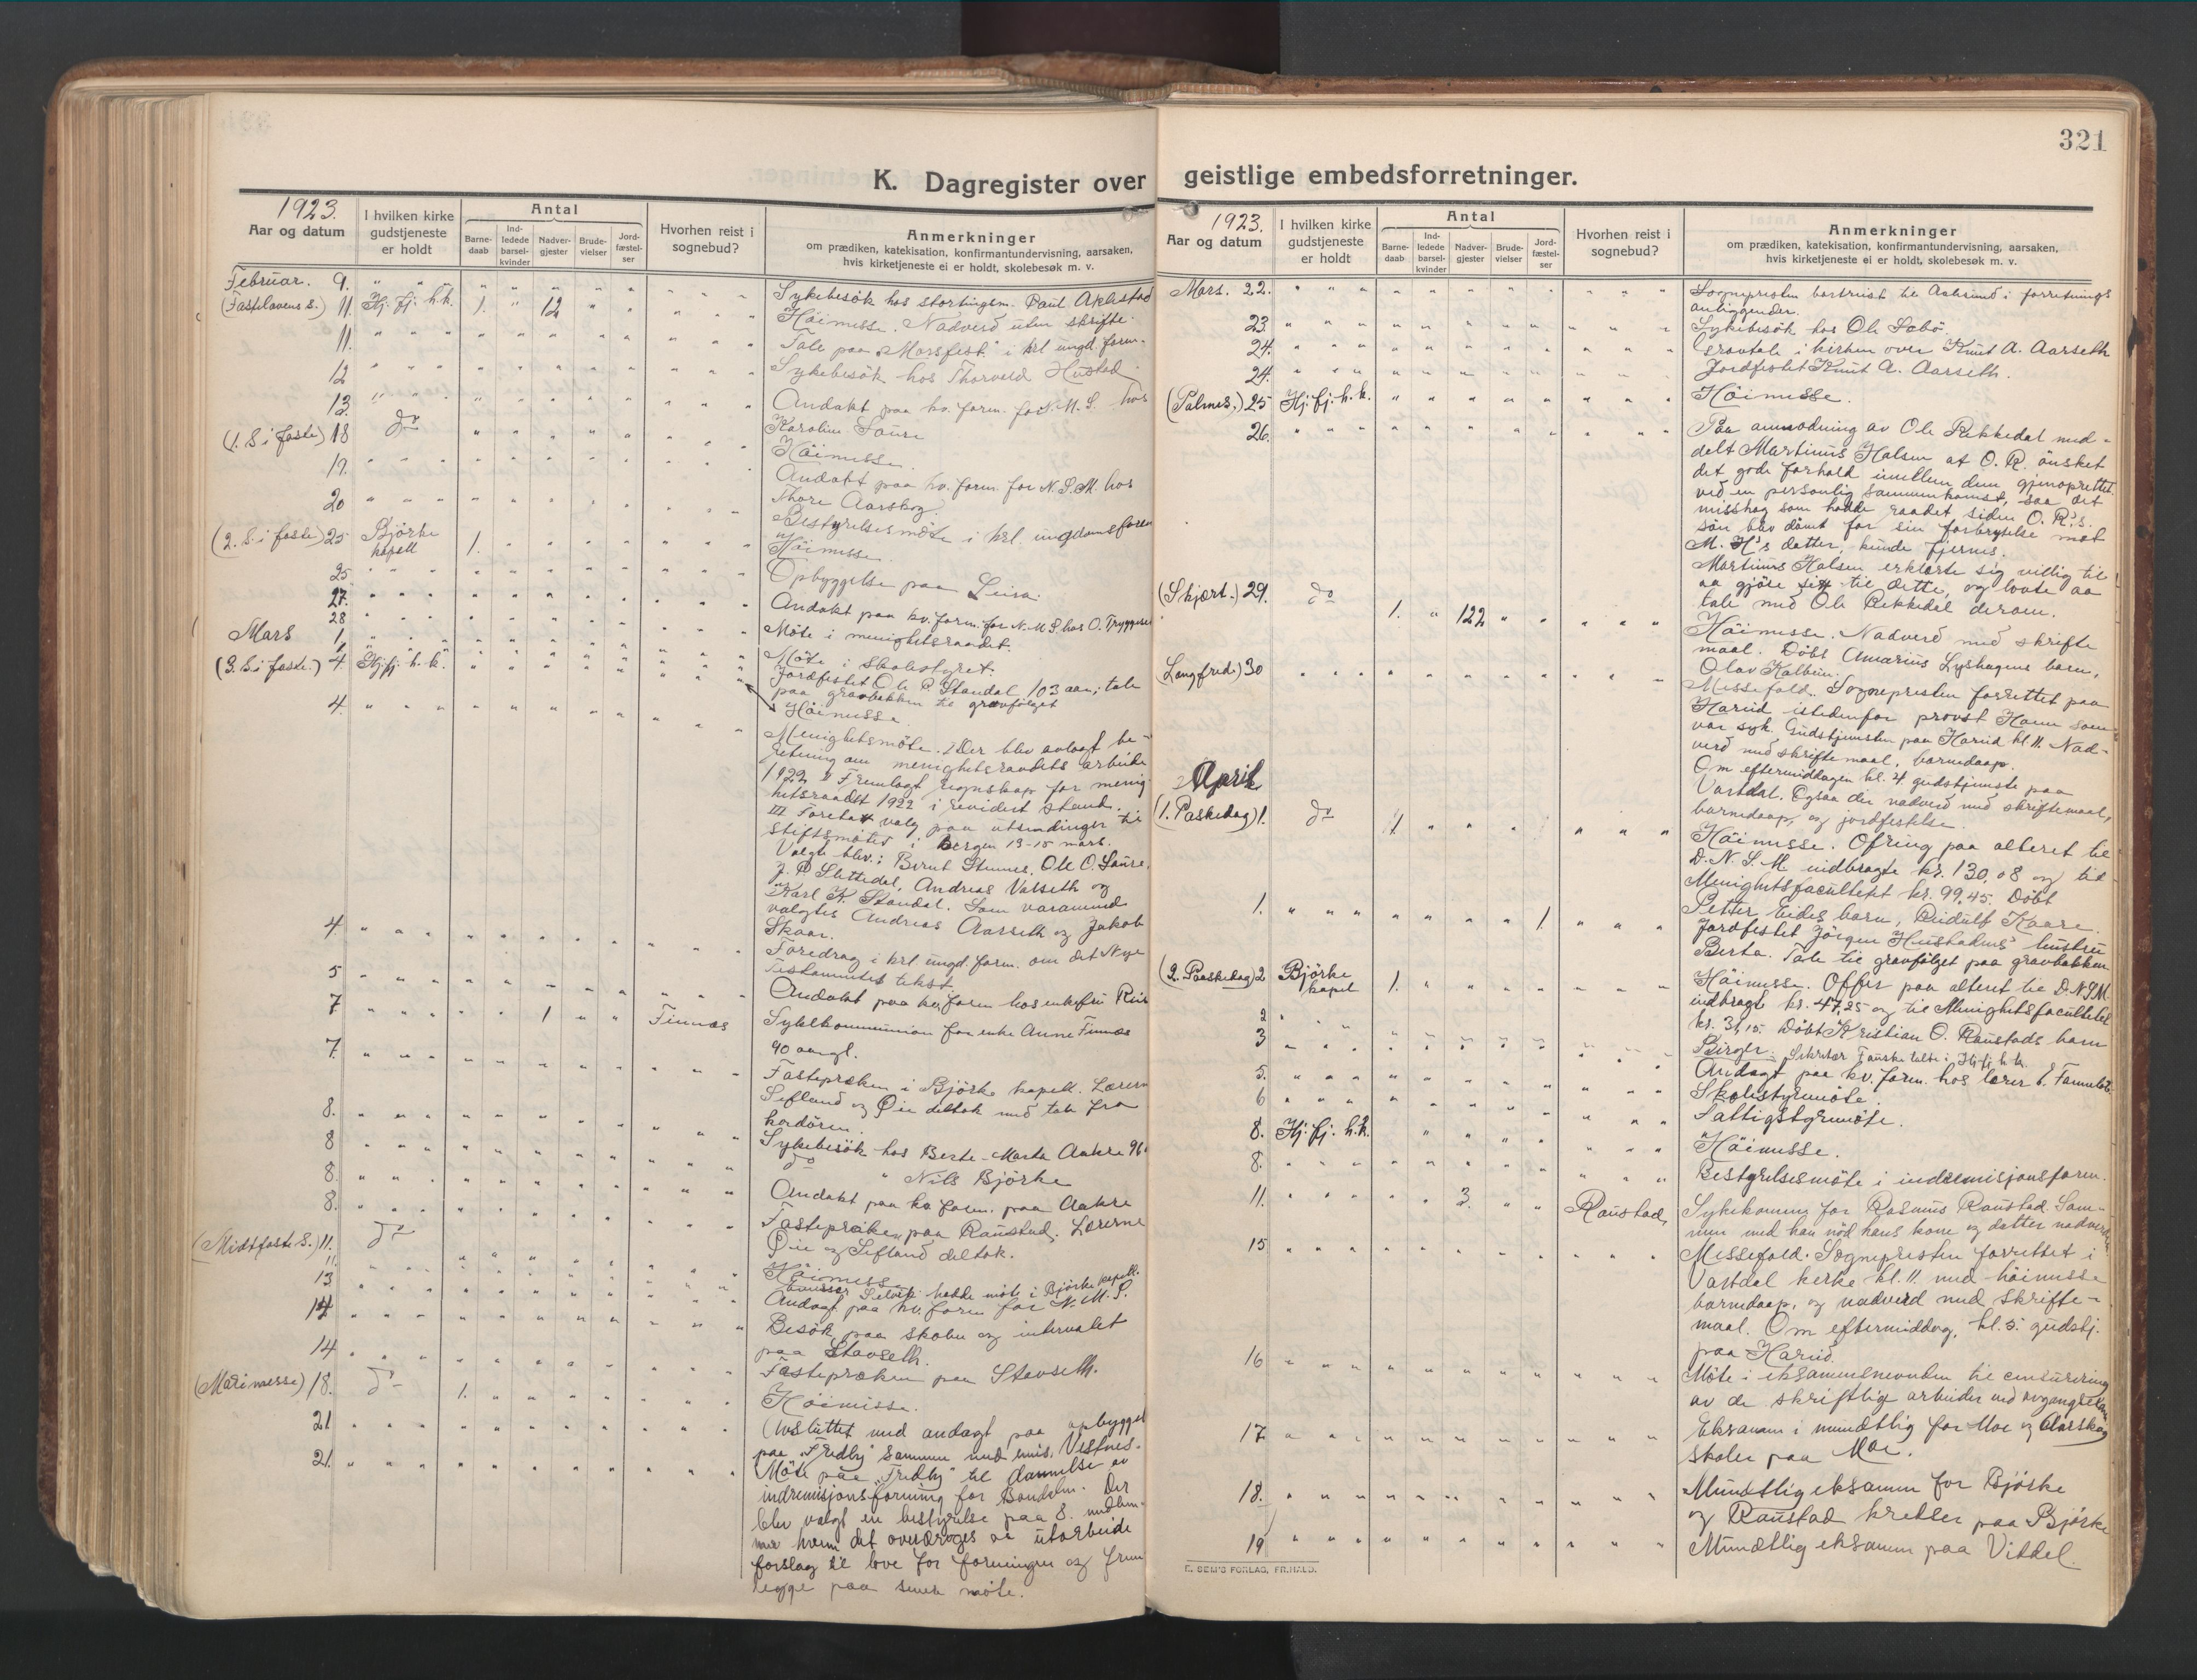 321
K. Dagregister over geistlige embedsforretninger.
1923.
Aar og datum
I hvilken kirke gudstjeneste er holdt
Antal
Barne-daab
Ind-ledede barsel-kvinder
Nadver-gjester
Brude-vielser
Jord-fæstel-ser
Hvorhen reist i sognebud?
Anmerkninger
om prædiken, katekisation, konfirmantundervisning, aarsaken,
hvis kirketjeneste ei er holdt, skolebesøk m. v.
Februar. 9. " " " Sykebesök hos stortingsm. Paul
(Fastelavens s.) 11. Hj. fj. h. k. 1. " 12 " " Höimesse. Nadverd uten skrifte.
11. Tale paa "Morsfest" i krl. ungd. foren.
12 Sykebesök hos Thorvald Hustad
13. Andakt paa kv. foren. for N. M. S. hos
Karoline Saure
(1. S i faste) 18 do Höimesse.
19. Andakt paa kv. foren. for N. S. M. hos
Thore Aarskog.
20 Bestyrelsesmöte i krl. ungdomsforen
(2. S. i faste) 25 Björke kapell 1. Höimesse.
25 Opbyggelse paa Leira.
27. Andakt paa kv. foren. for N. M. S. hos O. Tryggestad
28 Möte i menighetsraadet.
Mars 1. Möte i skolestyret.
(3. S. i faste.) 4. Hj. fj. h. k. Jordfestet Ole P. Standal, 103 aar; tale
paa gravbakken til gravfölget
Höimesse.
4. Menighetsmöte. I Der blev avlagt be-
retning om menighetsraadets arbeide
1922 II Fremlagt regnskap for menig
hetsraadet 1922 i revidert stand.
III Foretat valg paa utsendinger til
stiftsmötet i Bergen 13-15 mars.
Valgte blev: Bernt Stennes, Ole O. Saure,
J. P. Slettedal, Andreas Vatseth og
Karl K. Standal. Som varamend
valgtes Andreas Aarseth og Jakob
Skaar.
4. Foredrag i krl. ungd. foren. om det Nye
Testamentes tekst.
5 Andakt paa kv. foren hos enkefru
7 1 Finnæs Sykekommunion for enke Anne Finnæs
90 aargl.
7. Fastepræken i Björke kapell. Lærerne
Sefland og Öie deltok med tale fra
kordören.
8. Sykebesök hos Berte-Marta Aakre 96
8 do " Nils Björke
8. Andakt paa kv. foren. paa Aakre
8. Fasteprækn paa Raustad. Lærerne
Öie og Sefland deltok.
(Midtfaste S.) 11. do Höimesse
11. hadde möte i Björke kapell.
13 Andagt paa kv. foren for N. M. S.
14 Besök paa skolen og internatet
paa Stavseth.
14 Fasteprækn paa Stavseth.
(Marimesse) 18. do 1. Höimesse.
21 Avsluttet med andagt paa opbyggel
paa "Fredly" sammen med emis. Vestnes.
21. Möte paa "Fredly" til dannelse av
indremisjonsforening for Bondalen. Der
blev valgt en bestyrelse paa 8. medlem-
mer hvem det overdroges at utarbeide
forslag til love for foreningen og frem
legge paa senere möte.
1923.
Aar og datum
I hvilken kirke gudstjeneste er holdt
Antal
Barne-daab
Ind-ledede barsel-kvinder
Nadver-gjester
Brude-vielser
Jord-fæstel-ser
Hvorhen reist i sognebud?
Anmerkninger
om prædiken, katekisation, konfirmantundervisning, aarsaken,
hvis kirketjeneste ei er holdt, skolebesøk m. v.
Mars. 22. Sognepresten bortreist til Aalesund i forretnings
anliggender.
23. Sykebesök hos Ole Sæbö.
24. Gravtale i kirken over Knut A. Aarseth
24. Jordfestet Knut A. Aarseth.
(Palmes.) 25 Hj. fj. h. k. Höimesse.
26. Paa anmodning av Ole Rekkedal med-
delt Martinus Halsen at O. R. önsket
det gode forhold imellem dem gjenoprettet
ved en personlig sammenkomst, saa det
misshag som hadde raadet siden O. R.'s.
sön blev dömt for sin forbrytelse mot
M. H's datter, kunde fjernes.
Martinus Halsen erklærte sig villig til
aa gjöre sitt til dette, og lovte aa
tale med Ole Rekkedal derom.
(Skjært.) 29. do 1. " 122 Höimesse. Nadverd med skrifte
maal. Döbt Amarius Lyshagens barn,
Olav Kolbein.
(Langfred.) 30 Messefald. Sognepresten forrettet paa
Hareid istedenfor provst Hamn som
var syk. Gudstjenesten paa Hareid kl. 11. Nad-
verd med skriftemaal, barnedaap.
Om eftermiddagen kl. 4 gudstjeneste paa
Vartdal. Ogsaa der nadverd med skriftemaal,
barnedaap, og jordfestelse.
April
(1. Paskedag) 1. do 1 Höimesse. Ofring paa alteret til
D. N. S. M. indbragte kr. 130,08 og til
Menighetsfacultetet kr. 99,45. Döbt
Petter Eides barn, Reidulf Kaare.
1. 1. Jordfestet Jörgen Hustadens hustru
Berta. Tale til gravfölget paa gravbakken
(2. Paaskedag) 2 Björke kapel 1. Höimesse. Offer paa alteret til D. N. S. M.
indbragt kr. 47,25 og til Menighetsfacultetet
kr. 31,15. Döbt Kristian O. Raustads barn
Birger.
2 Sekretær Fauske talte i Hj. fj. h. k.
3 Andagt paa kv. foren. hos lærer
5. Skolestyremöte.
6 Fattigstyremöte.
8. Hj. fj. h. k. Höimesse.
8. Bestyrelsesmöte i indremisjonsforen.
11. 3. Raustad, Sykekomm. for Rasmus Raustad. Sam-
men med han nöd hans kone og datter nadverden.
15 Messefald. Sognepresten forrettet i
Vartdal kirke kl. 11. med höimesse
barnedaap, og nadverd med skrifte-
maal. Om eftermiddag, kl. 5. gudstj.
paa Hareid.
16 Möte i eksamensnevnden til censurering
av de skriftlige arbeider ved avgangseksam
17 Eksamen i mundtlig for Moe og Aarskog
skoler paa Moe.
18. Mundtlig eksamen for Björke
og Raustad kretser paa Björke
19 Mundtlig eksamen paa Viddel.
E. SEM'S FORLAG, FR.HALD.